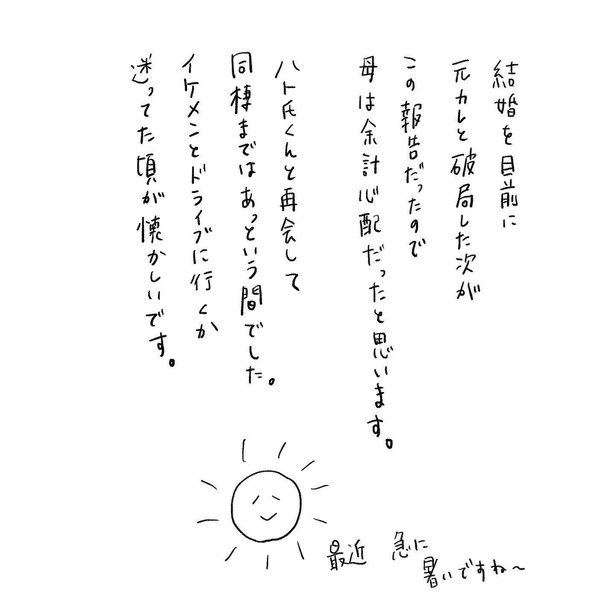 結婚を目前に
元カレと破局した次が
この報告だったので
母は余計心配だったと思います。
ハト氏くんと再会して
同棲まではあっという間でした。
イケメンとドライブに行くか
迷ってた頃が懐かしいです。
最近 急に
暑いですね〜